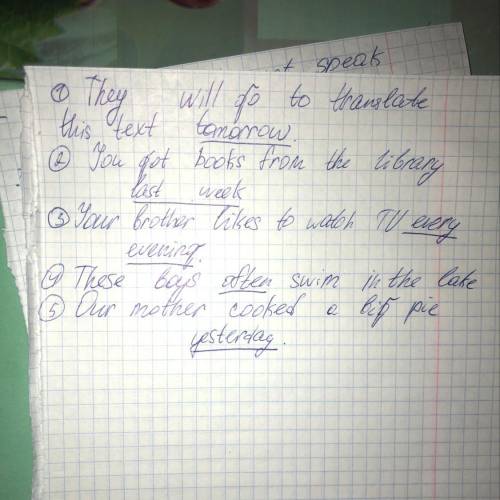 speak
① They will go to translate
this text tomorrow.
② You got books from the library
last week
③ Your brother likes to watch TV every
evening.
④ These boys often swim in the lake
⑤ Our mother cooked a big pie
yesterday.